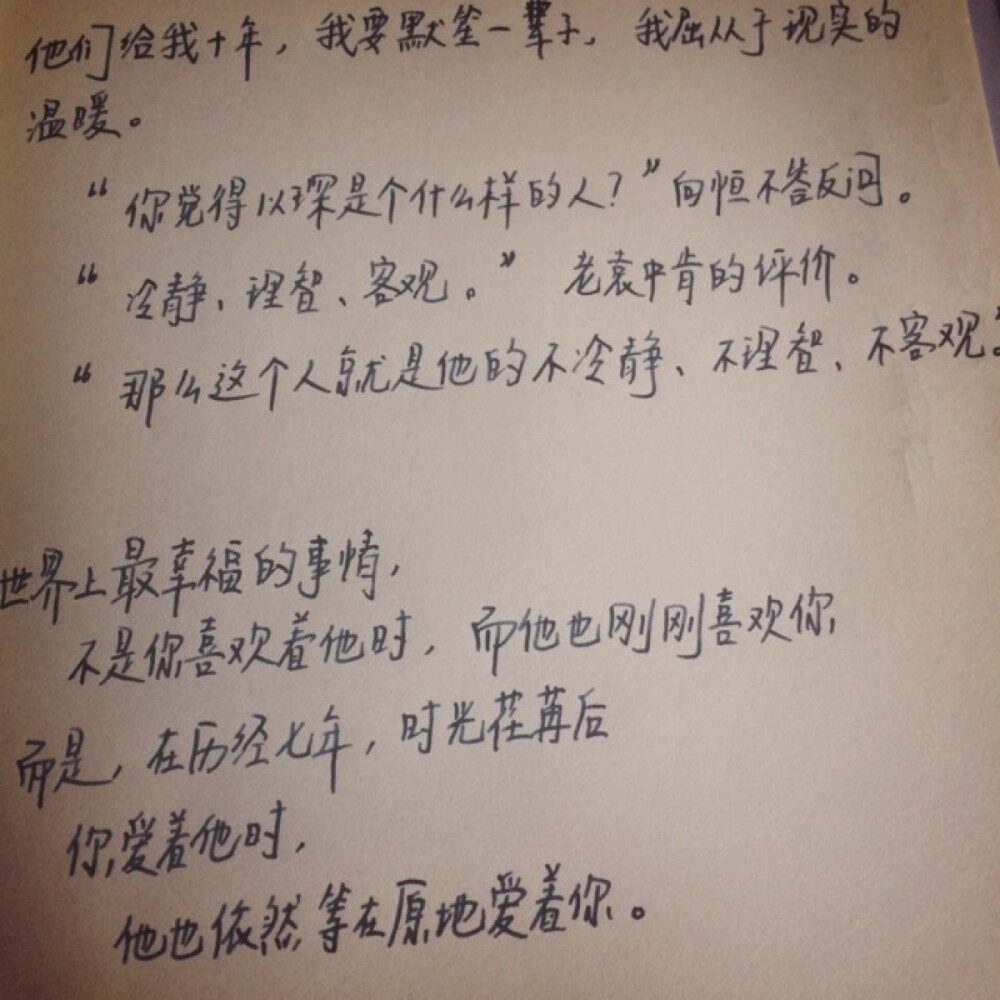 他们给我十年，我要默笙一辈子，我屈从于现实的
温暖。
“你觉得以琛是个什么样的人？”向恒不答反问。
“冷静、理智、客观。”老袁中肯的评价。
“那么这个人就是他的不冷静、不理智、不客观。”
世界上最幸福的事情，
不是你喜欢着他时，而他也刚刚喜欢你
而是，在历经七年，时光荏苒后
你爱着他时，
他也依然等在原地爱着你。